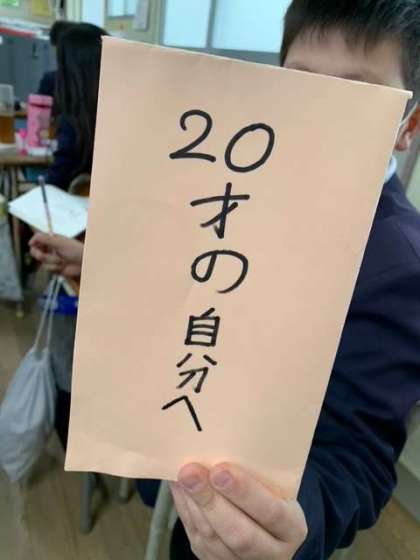 20才の自分へ